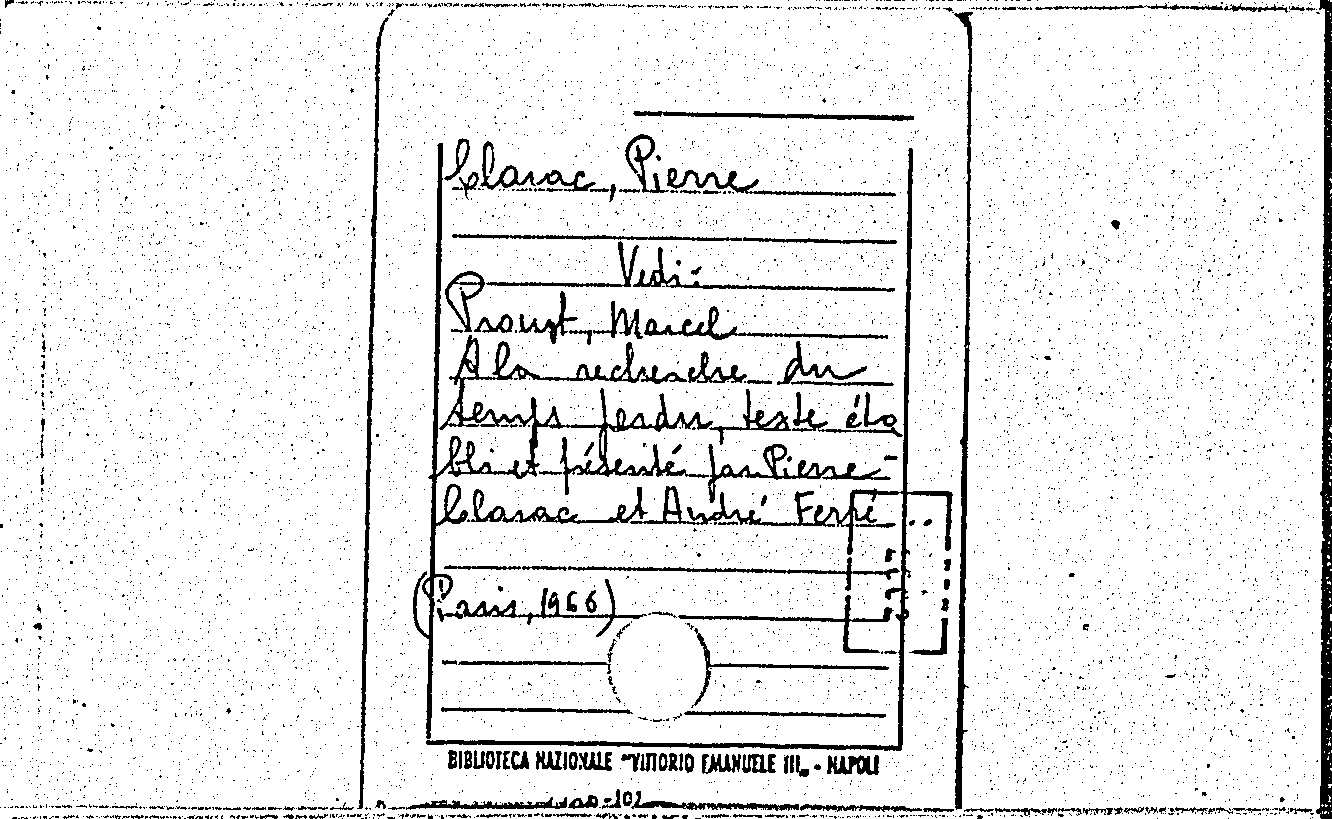 Clarac, Pierre
Vedi:
Proust, Marcel
A la recherche du
temps perdu, texte éta
bli et présenté par Pierre
Clarac et André Ferré
(Paris, 1966)
BIBLIOTECA NAZIONALE "VITTORIO EMANUELE III„ - NAPOLI